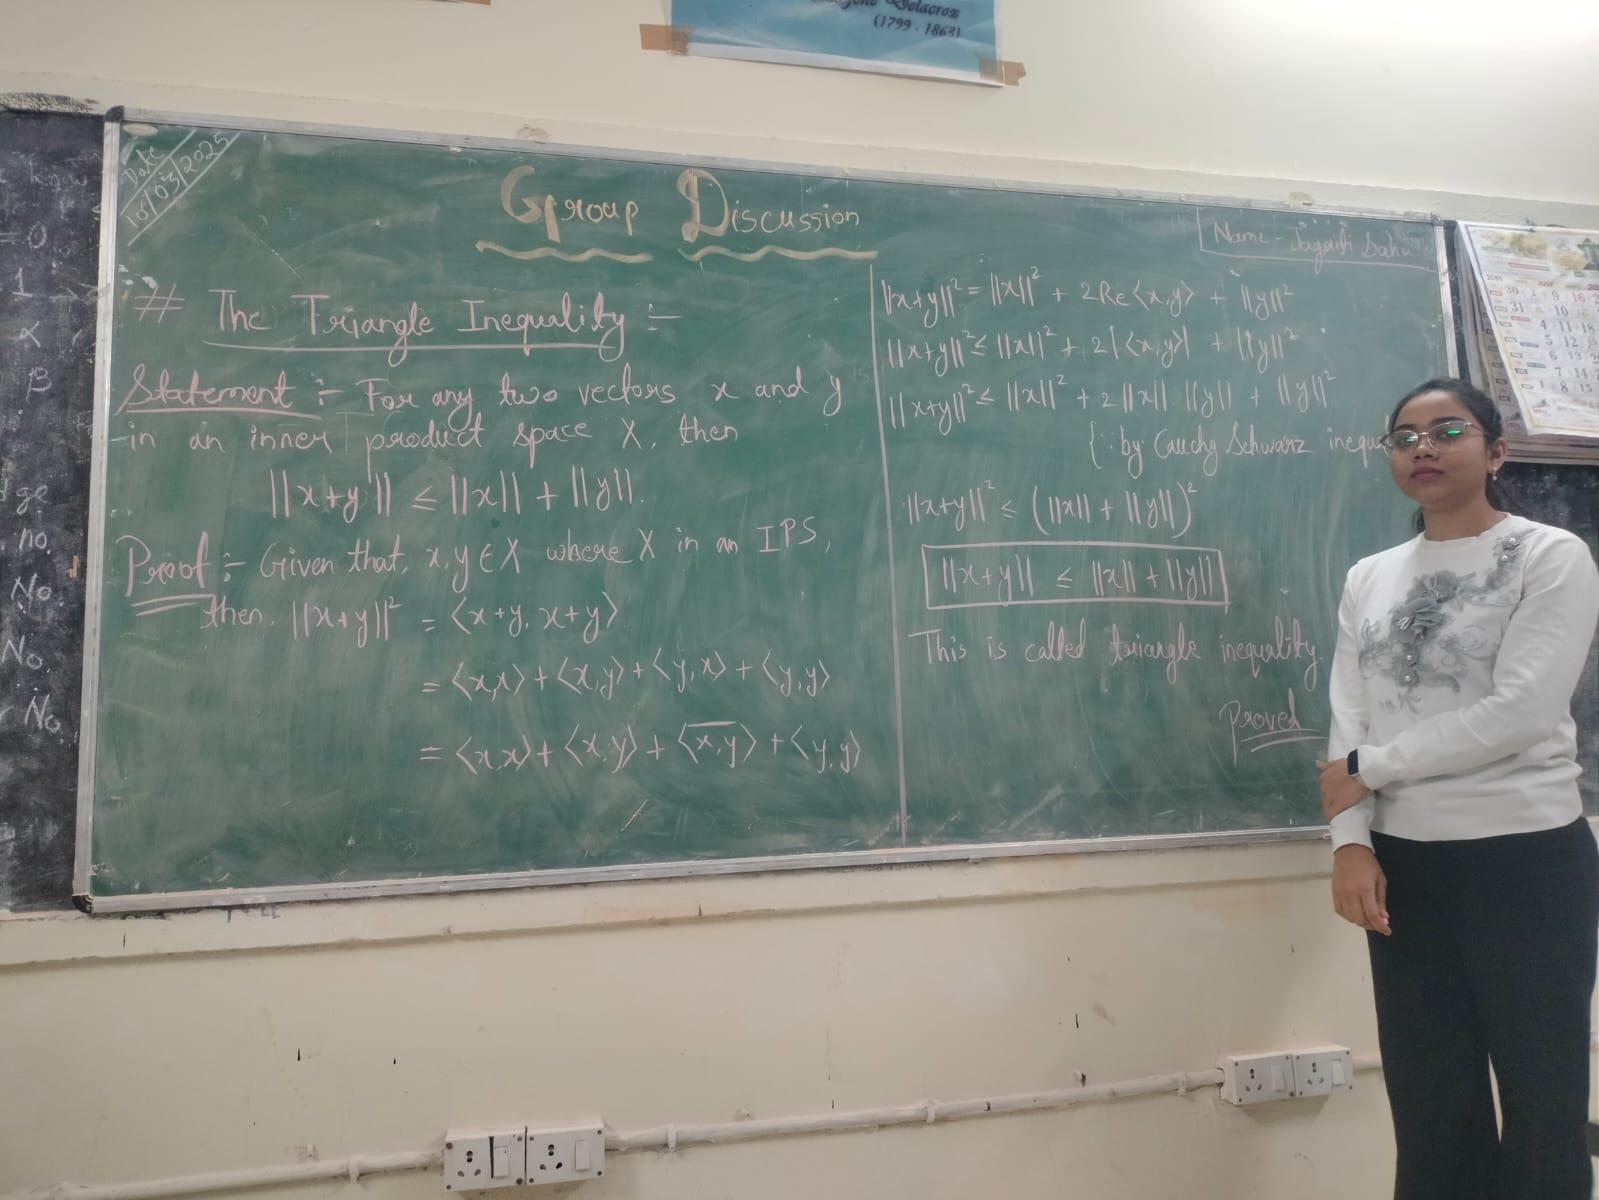 Delacrox
(1799 - 1863)
Date
10/03/2025
Group Discussion
Name - Jagriti Sahu
# The Triangle Inequality :-
Statement :- For any two vectors x and y
in an inner product space X, then
||x+y|| ≤ ||x|| + ||y||.
Proof :- Given that, x,y ∈ X where X in an IPS,
then, ||x+y||² = ⟨x+y, x+y⟩
= ⟨x,x⟩ + ⟨x,y⟩ + ⟨y,x⟩ + ⟨y,y⟩
= ⟨x,x⟩ + ⟨x,y⟩ + ⟨x,y⟩̅ + ⟨y,y⟩
||x+y||² = ||x||² + 2Re⟨x,y⟩ + ||y||²
||x+y||² ≤ ||x||² + 2|⟨x,y⟩| + ||y||²
||x+y||² ≤ ||x||² + 2||x|| ||y|| + ||y||²
{∵ by Cauchy Schwarz inequ
||x+y||² ≤ (||x|| + ||y||)²
||x+y|| ≤ ||x|| + ||y||
This is called triangle inequality.
Proved
know
= 0
1
α
β
no.
No.
No.
No.